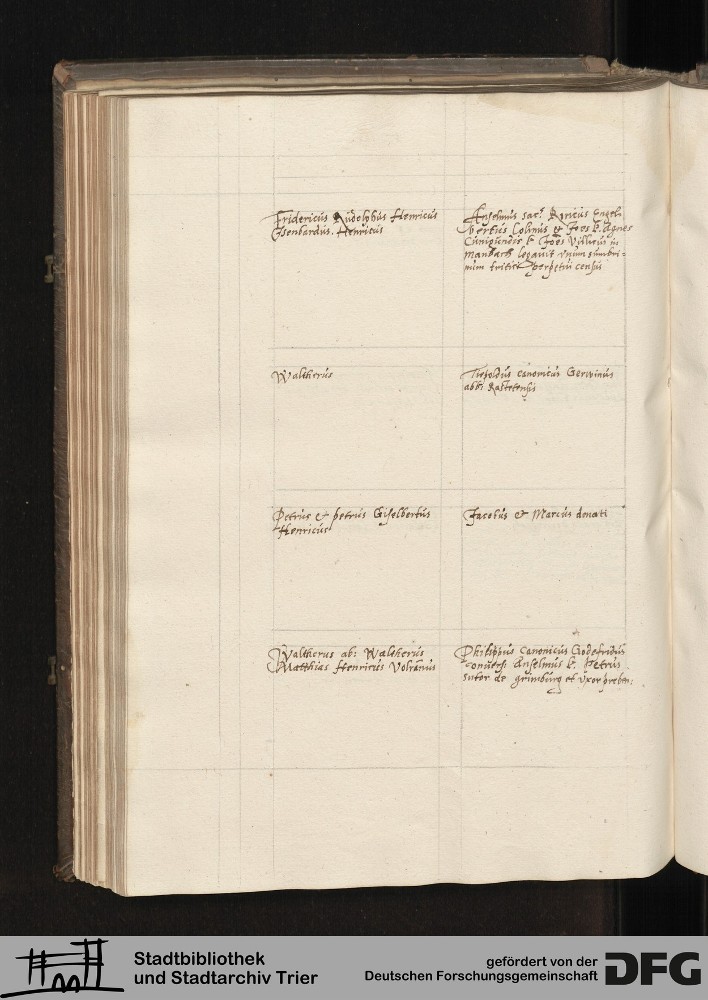 Fridericus Rudolphus Henricus
Isenbardus. Henricus
Anselmus sac. Ryricus Engel
bertus Colinus & Joes b. Agnes
Cunigundis b. Joes Villicus in
Manbach legavit unum sumbri-
num tritici perpetui census
Waltherus
Tiepoldus canonicus Gerwinus
abb: Rastetensis
Petrus & petrus Giselbertus
Henricus
Jacobus & Marcus donati
Waltherus ab: Waltherus
Matthias Henricus Volramus
Philippus Canonicus Godefridus
convers. Anselmus b. Petrus
sutor de grimburg et uxor preben:
Stadtbibliothek
und Stadtarchiv Trier
gefördert von der
Deutschen Forschungsgemeinschaft
DFG